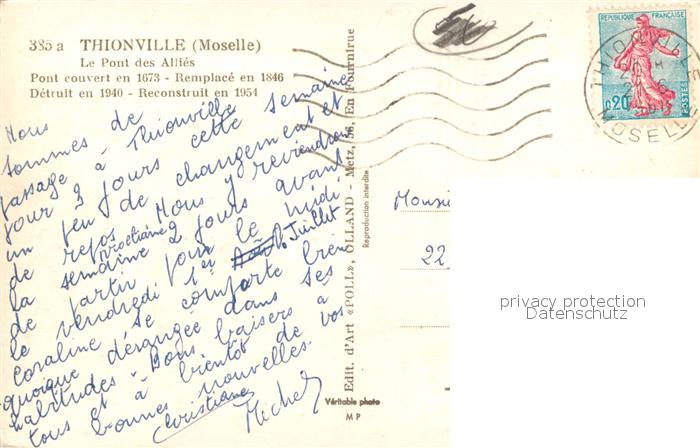 385 a THIONVILLE (Moselle)
Le Pont des Alliés
Pont couvert en 1673 - Remplacé en 1846
Détruit en 1940 - Reconstruit en 1954
Nous
sommes de
passage à Thionville
pour 3 jours cette semaine
un peu de changement et
de repos. Nous y reviendrons
la semaine prochaine 2 jours avant
de partir pour le midi
le vendredi 1er Août Juillet
Coraline se comporte bien
quoique dérangée dans ses
habitudes. Bons baisers à
tous et à bientôt de vos
bonnes nouvelles.
Christiane Michel
Edit. d'Art «POLL», OLLAND - Metz, 56, En Fournirue
Reproduction interdite
Véritable photo
M P
REPUBLIQUE FRANÇAISE
0,20
POSTES
THIONVILLE
MOSELLE
Monsieur
22
privacy protection
Datenschutz